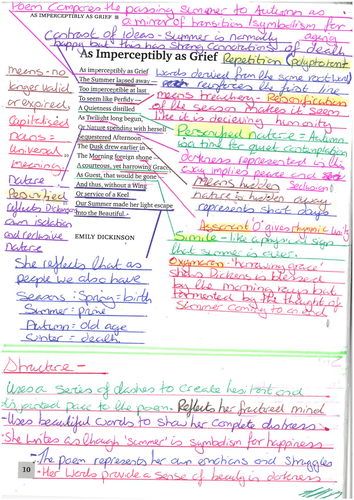 Poem compares the passing summer to Autumn as
AS IMPERCEPTIBLY AS GRIEF
a mirror of transition/symbolism for
contrast of ideas - Summer is normally aging
happy but this has strong connotations of death
As Imperceptibly as Grief
Repetition (Polyptoton)
As imperceptibly as Grief
The Summer lapsed away —
Too imperceptible at last
To seem like Perfidy —
A Quietness distilled
As Twilight long begun,
Or Nature spending with herself
Sequestered Afternoon —
The Dusk drew earlier in —
The Morning foreign shone —
A courteous, yet harrowing Grace,
As Guest, that would be gone —
And thus, without a Wing
Or service of a Keel
Our Summer made her light escape
Into the Beautiful. -
EMILY DICKINSON
words derived from the same root word
reinforces the first line
means treachery - Personification
of the season makes it seem
like it is deceiving humanity
Personified nature = Autumn
is a time for quiet contemplation
darkness represented in the
day implies peace
Means hidden Seclusion
nature is hidden away
represents short days
Assonant 'O' gives rhymic
Simile - like a physical sign
that summer is over.
Oxymoron - 'harrowing grace'
shows Dickens is blessed
by the morning rays but
tormented by the thought of
Summer coming to an end
means - no
longer valid
or expired
Capitalised
nouns =
universal
meaning
Nature -
Personified
reflects
own isolation
and reclusive
nature
She reflects that as
people we also have
Seasons: Spring = birth
Summer = prime
Autumn = old age
Winter = death
Structure -
Uses a series of dashes to create hesitant and
disjointed pace to the poem. Reflects her fractured mind
- Uses beautiful words to show her complete distress
- She writes as though 'summer' is symbolism for happiness
- The poem represents her own emotions and struggles
- Her words provide a sense of beauty in darkness
10